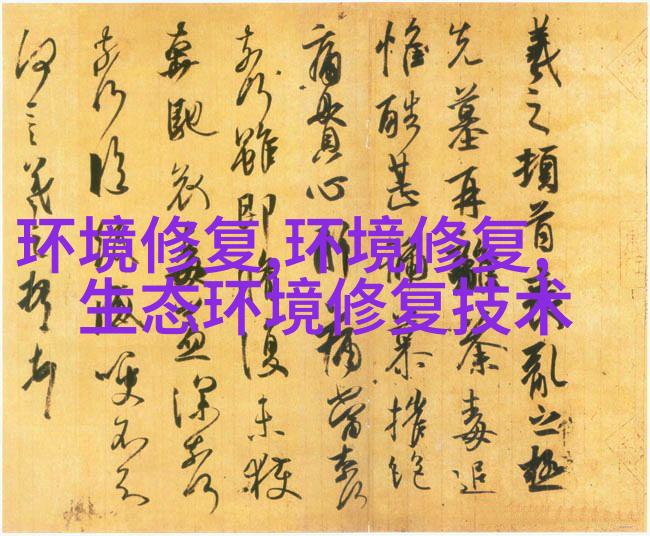 环境修复,环境修复,
生态环境修复技术
羲之頓首喪亂之極
先墓再離荼毒追
惟酷甚號慕摧絕
痛貫心肝痛當奈何
奈何雖即脩復未獲
奔馳哀毒益深奈何
奈何臨紙感哽不知
何言羲之頓首